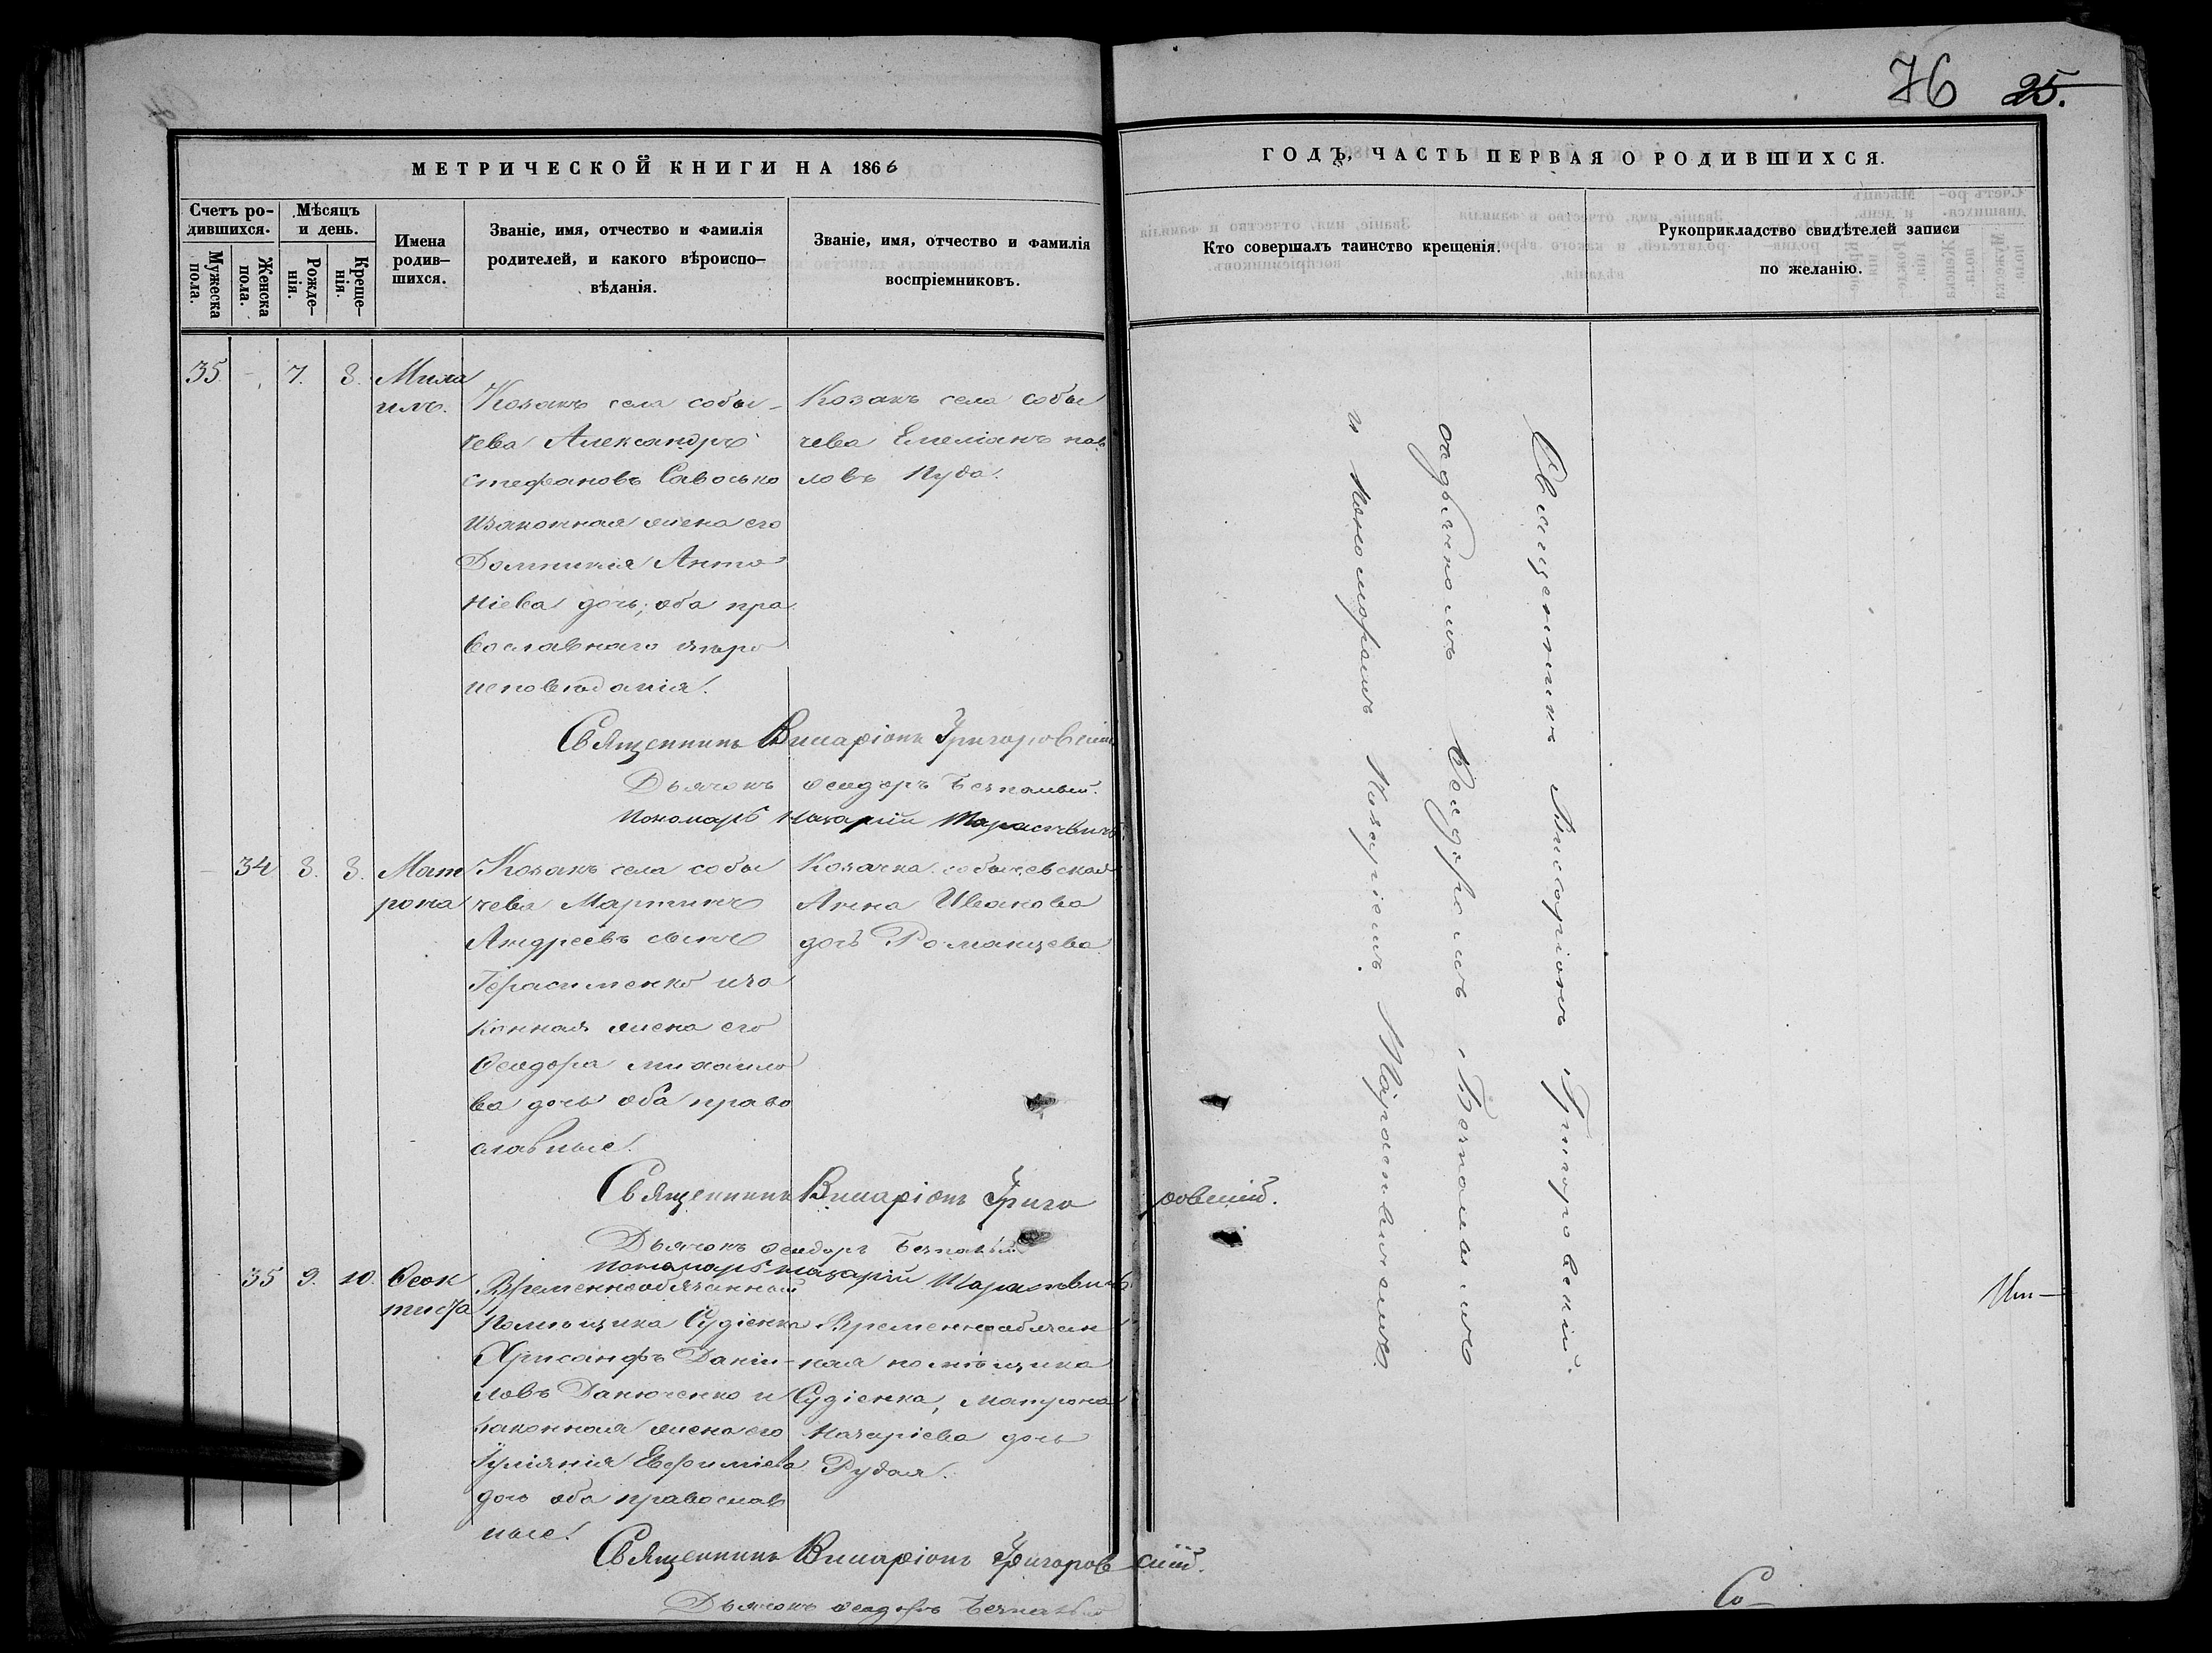 76 25.
МЕТРИЧЕСКОЙ КНИГИ НА 1866
ГОДЪ, ЧАСТЬ ПЕРВАЯ О РОДИВШИХСЯ.
Счетъ ро-
дившихся.
Мужеска
пола.
Женска
пола.
Мѣсяцъ
и день.
Рожде-
нія.
Креще-
нія.
Имена
родив-
шихся.
Званіе, имя, отчество и фамилія
родителей, и какого вѣроиспо-
вѣданія.
Званіе, имя, отчество и фамилія
воспріемниковъ.
Кто совершалъ таинство крещенія.
Рукоприкладство свидѣтелей записи
по желанію.
35 - 7. 8.
Козакъ села Собы-
чева Александръ
Стефановъ Савосько
изаконная жена его
Домникія Анто
ніева дочь; оба пра
вославнаго вѣро
исповѣданія.
Козакъ села Собы
чева Емеліанъ пав
ловъ Пуда.
Священникъ Виссаріонъ Григоровскій
Дьячокъ Ѳеодоръ
Пономарь Назарій Тарасевичъ
- 34 8. 8. Мат
рона
Козакъ села Собы
чева Мартинъ
Андреевъ сынъ
Герасименко иза
конная жена его
Ѳеодора михаило
ва дочь оба право
славные.
Козачка собычевская
Анна Иванова
дочь Романцева
Священникъ Виссаріонъ Григо ровскій.
Дьячокъ Ѳеодоръ
Пономарь Назарій Тарасевичъ
35 9. 10. Ѳеок
тиста
Временнообязанный
помѣщика Судіенка
Хрисанфъ Даніи-
ловъ Данюченко и
законная жена его
Іуліянія Евфиміева
дочь оба православ
ные.
Временнообязан
ная помѣщика
Судіенка, Матрона
Назаріева дочь
Рудая.
Священникъ Виссаріонъ Григоров скій.
Дьячокъ Ѳеодоръ
Священникъ Виссаріонъ Григоровскій.
съ дьячкомъ Ѳеодоромъ
и Пономаремъ Назаріемъ Тарасевичемъ.
Ит-
Со-